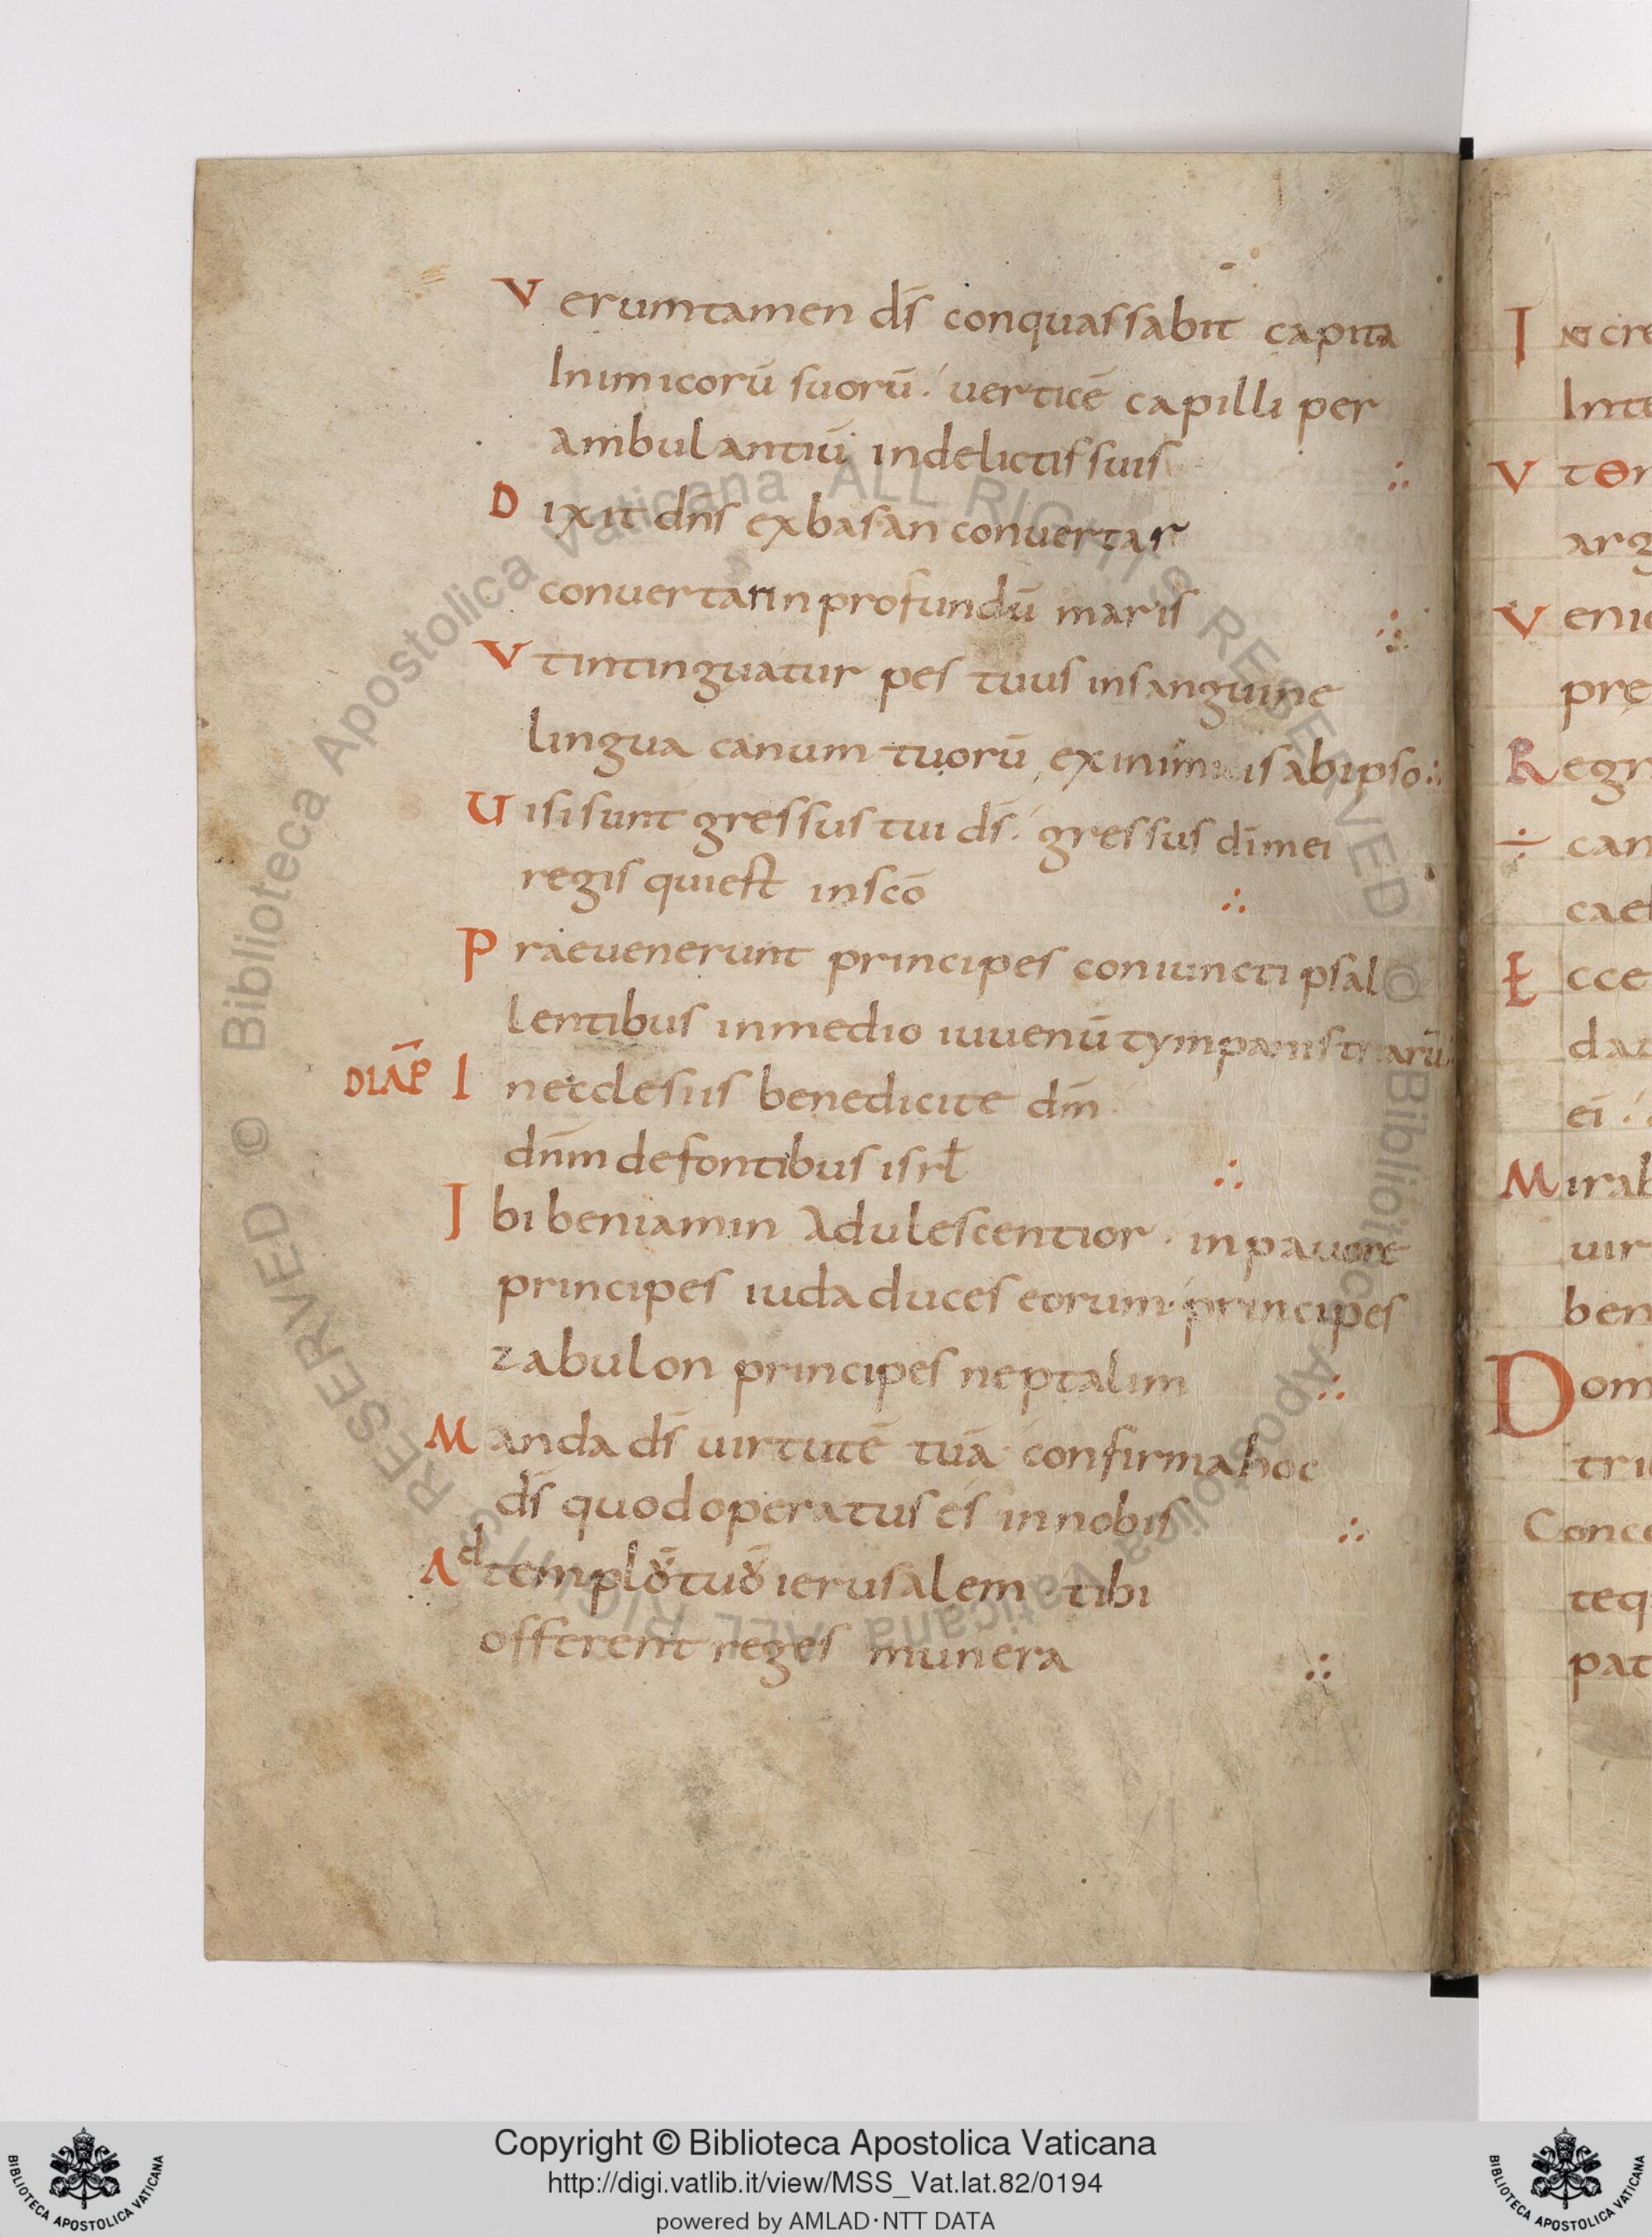 Verumtamen ds̄ conquassabit capita
Inimicorū suorū. uerticē capilli per
ambulantiū indelictis suis ∴
Dixit dn̄s exbasan conuertar
conuertar in profundū maris ∴
Vt intinguatur pes tuus insanguine
lingua canum tuorū ex inimicis abipso ∴
Uisi sunt gressus tui ds̄. gressus dīmei
regis quiest inscō ∴
Praeuenerunt principes coniuncti psal
lentibus inmedio iuuenū tympanistriarū
DIAP̄ Inecclesiis benedicite dm̄
dn̄m defontibus isrł ∴
Ibi beniamin adulescentior · inpauore
principes iuda duces eorum · principes
zabulon principes neptalim ∴
Manda ds̄ uirtutē tuā confirma hoc
ds̄ quod operatus es innobis ∴
Ad templō tuō ierusalem · tibi
offerent reges munera ∴
In cre
Inte
Vt er
arg
Venie
pre
Regn
÷ can
cael
Ecce
da
ei
Mirab
uir
ben
Dom
tri
Conce
teq
pat
© Biblioteca Apostolica Vaticana ALL RIGHTS RESERVED
© Biblioteca Apostolica Vaticana ALL RIGHTS RESERVED
Copyright © Biblioteca Apostolica Vaticana
http://digi.vatlib.it/view/MSS_Vat.lat.82/0194
powered by AMLAD·NTT DATA
BIBLIOTECA APOSTOLICA VATICANA
BIBLIOTECA APOSTOLICA VATICANA